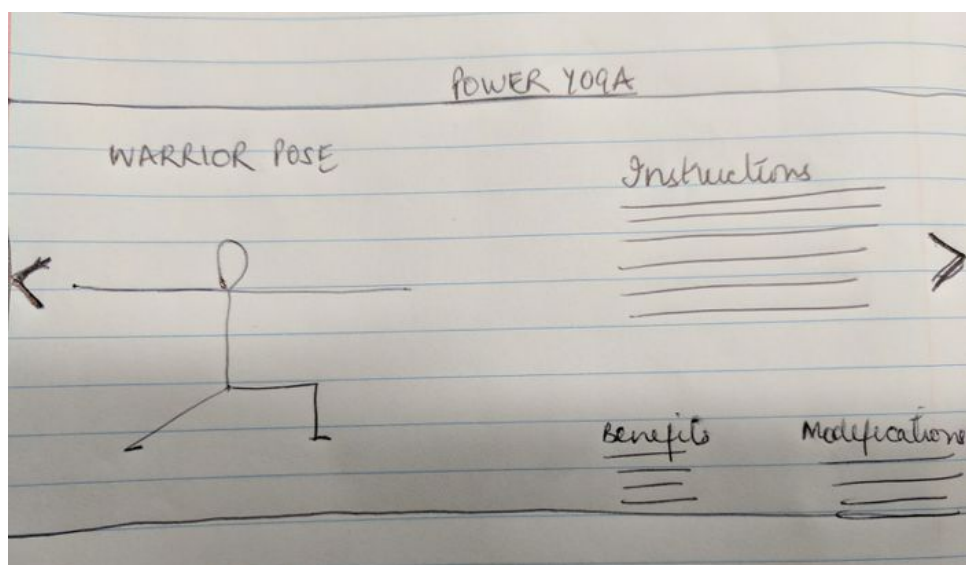 POWER YOGA
WARRIOR POSE
Instructions
Benefits
Modifications